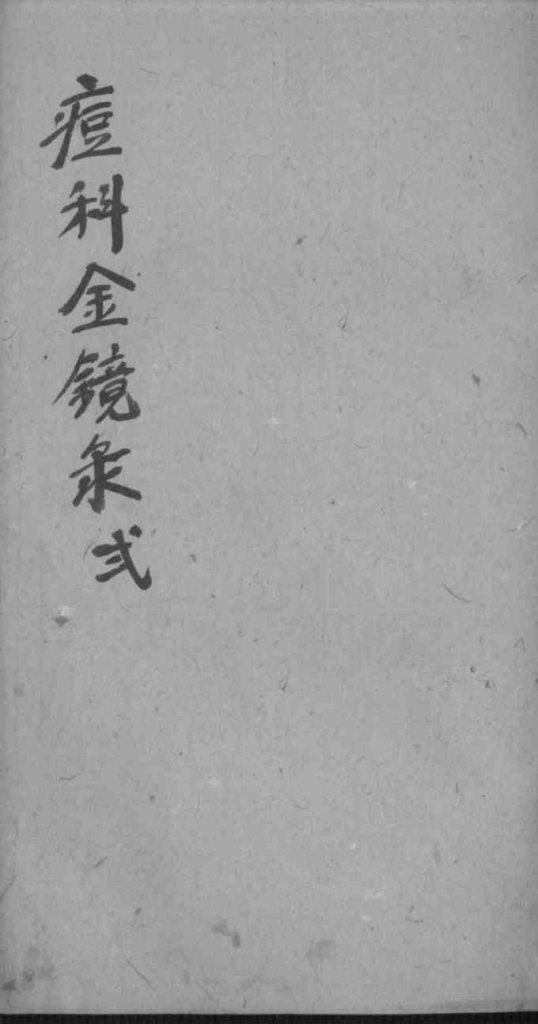 痘科金鏡录弍